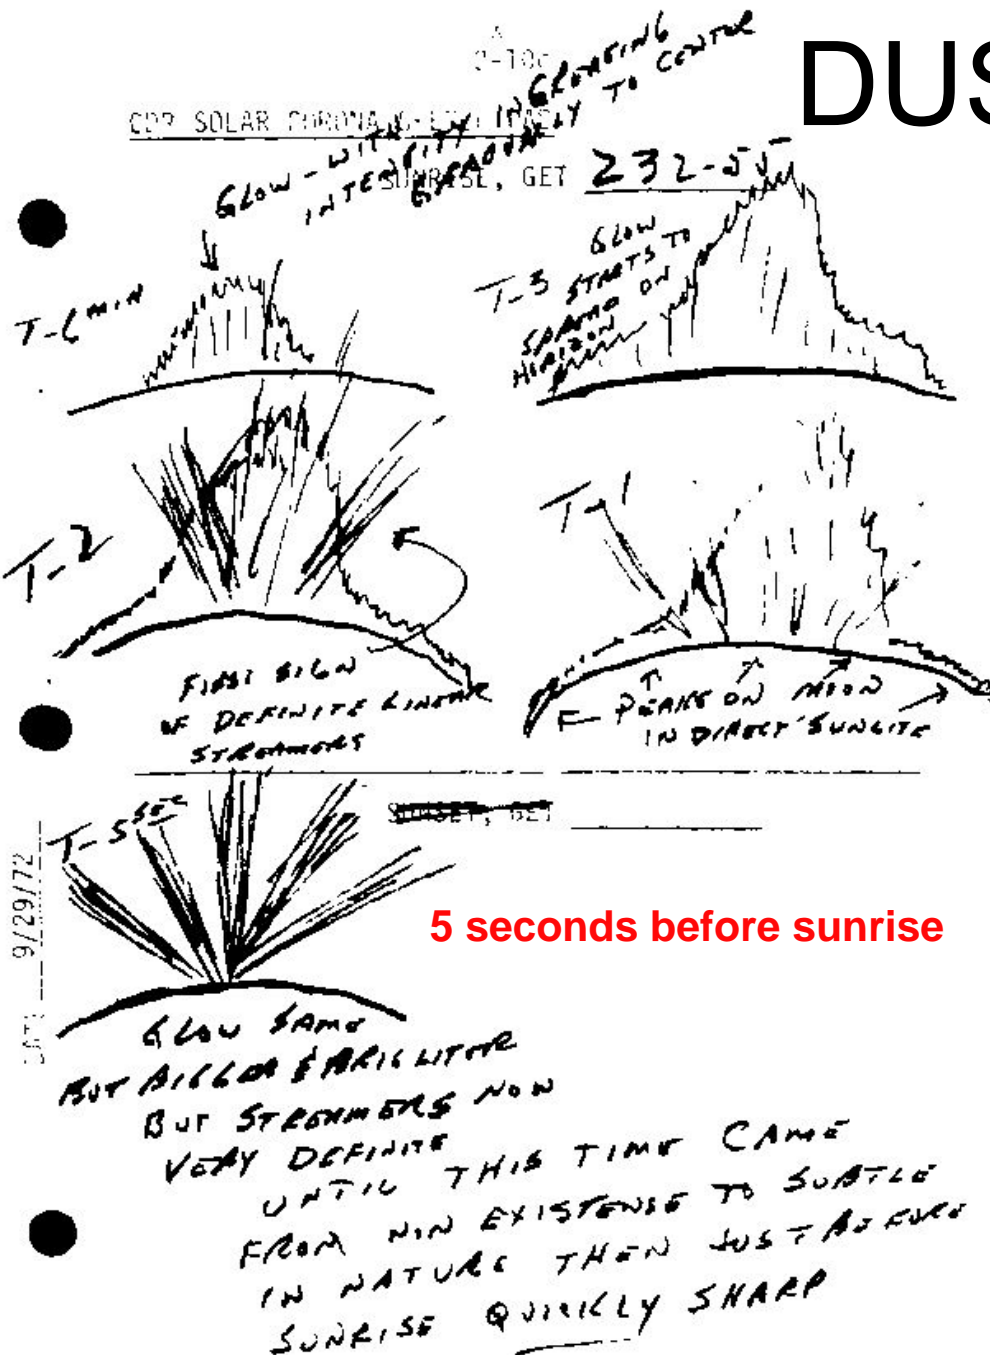 DUS
2-10
CDR SOLAR CORONA
GLOW - WITH INCREASING
INTENSITY GRADUALLY TO CENTER
SUNRISE, GET 232-55
T-6 MIN
T-3 GLOW
STARTS TO
SPREAD ON
HORIZON
T-2
T-1
FIRST SIGN
OF DEFINITE LINEAR
STREAMERS
PEAKS ON MOON
IN DIRECT SUNLITE
T-5 SEC
SUNSET, GET
5 seconds before sunrise
DATE 9/29/72
GLOW SAME
BUT BIGGER & BRIGHTER
BUT STREAMERS NOW
VERY DEFINITE
UNTIL THIS TIME CAME
FROM NON EXISTENSE TO SUBTLE
IN NATURE THEN JUST BEFORE
SUNRISE QUICKLY SHARP